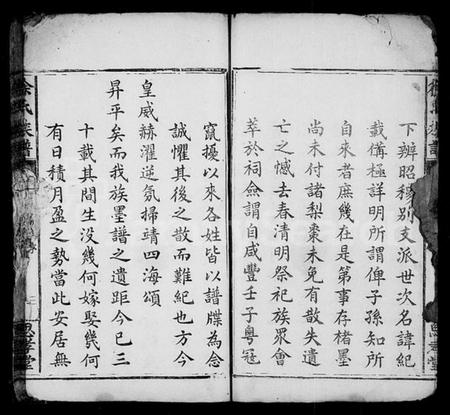 下辨昭穆別支派世次名諱紀
載僃極詳明所謂俾子孫知所
自來者庶幾在是第事存楮墨
尚未付諸梨棗未免有散失遺
亡之憾去春清明祭祀族眾會
萃於祠僉謂自咸豐壬子粵寇
竄擾以來各姓皆以譜牒為念
誠懼其後之散而難紀也方今
皇威赫濯逆氛掃靖四海頌
昇平矣而我族墨譜之遺距今已三
十載其間生没幾何嫁娶幾何
有日積月盈之勢當此安居無
徐氏族譜